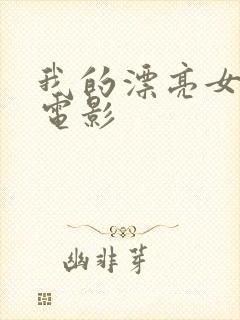 我的漂亮女
電影
幽非芽